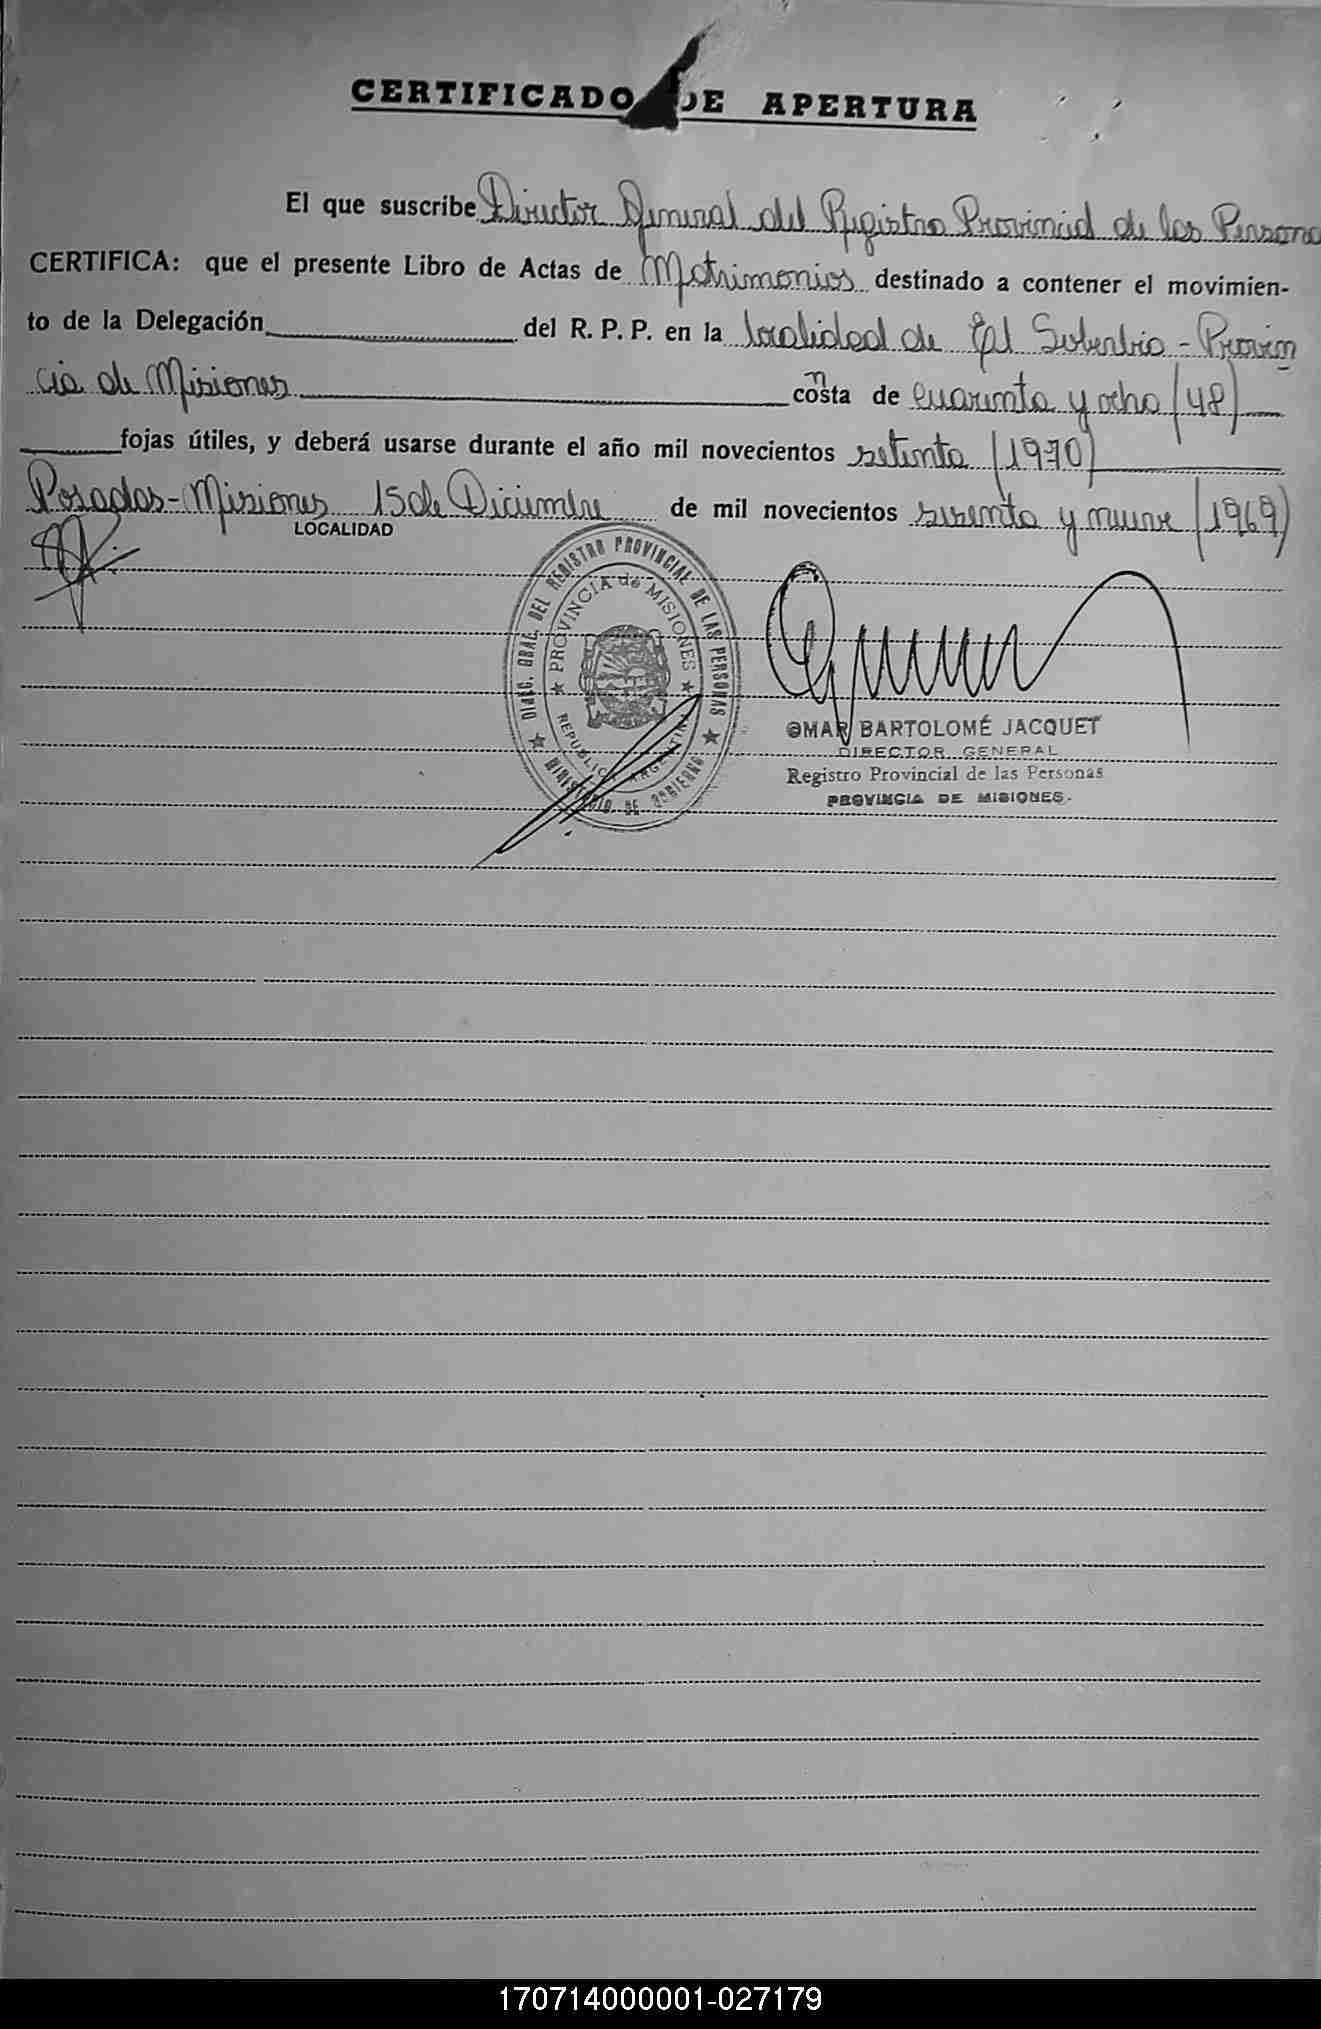 CERTIFICADO DE APERTURA
El que suscribe Director General del Registro Provincial de las Persona
CERTIFICA: que el presente Libro de Actas de Matrimonios destinado a contener el movimien-
to de la Delegación del R. P. P. en la localidad de El Soberbio - Provin
cia de Misiones consta de cuarenta y ocho (48)
fojas útiles, y deberá usarse durante el año mil novecientos setenta (1970)
Posadas - Misiones 15 de Diciembre de mil novecientos sesenta y nueve (1969)
LOCALIDAD
DIREC. GRAL. DEL REGISTRO PROVINCIAL DE LAS PERSONAS
PROVINCIA de MISIONES
REPUBLICA ARGENTINA
MINISTERIO DE GOBIERNO
OMAR BARTOLOMÉ JACQUET
DIRECTOR GENERAL
Registro Provincial de las Personas
PROVINCIA DE MISIONES.-
170714000001-027179